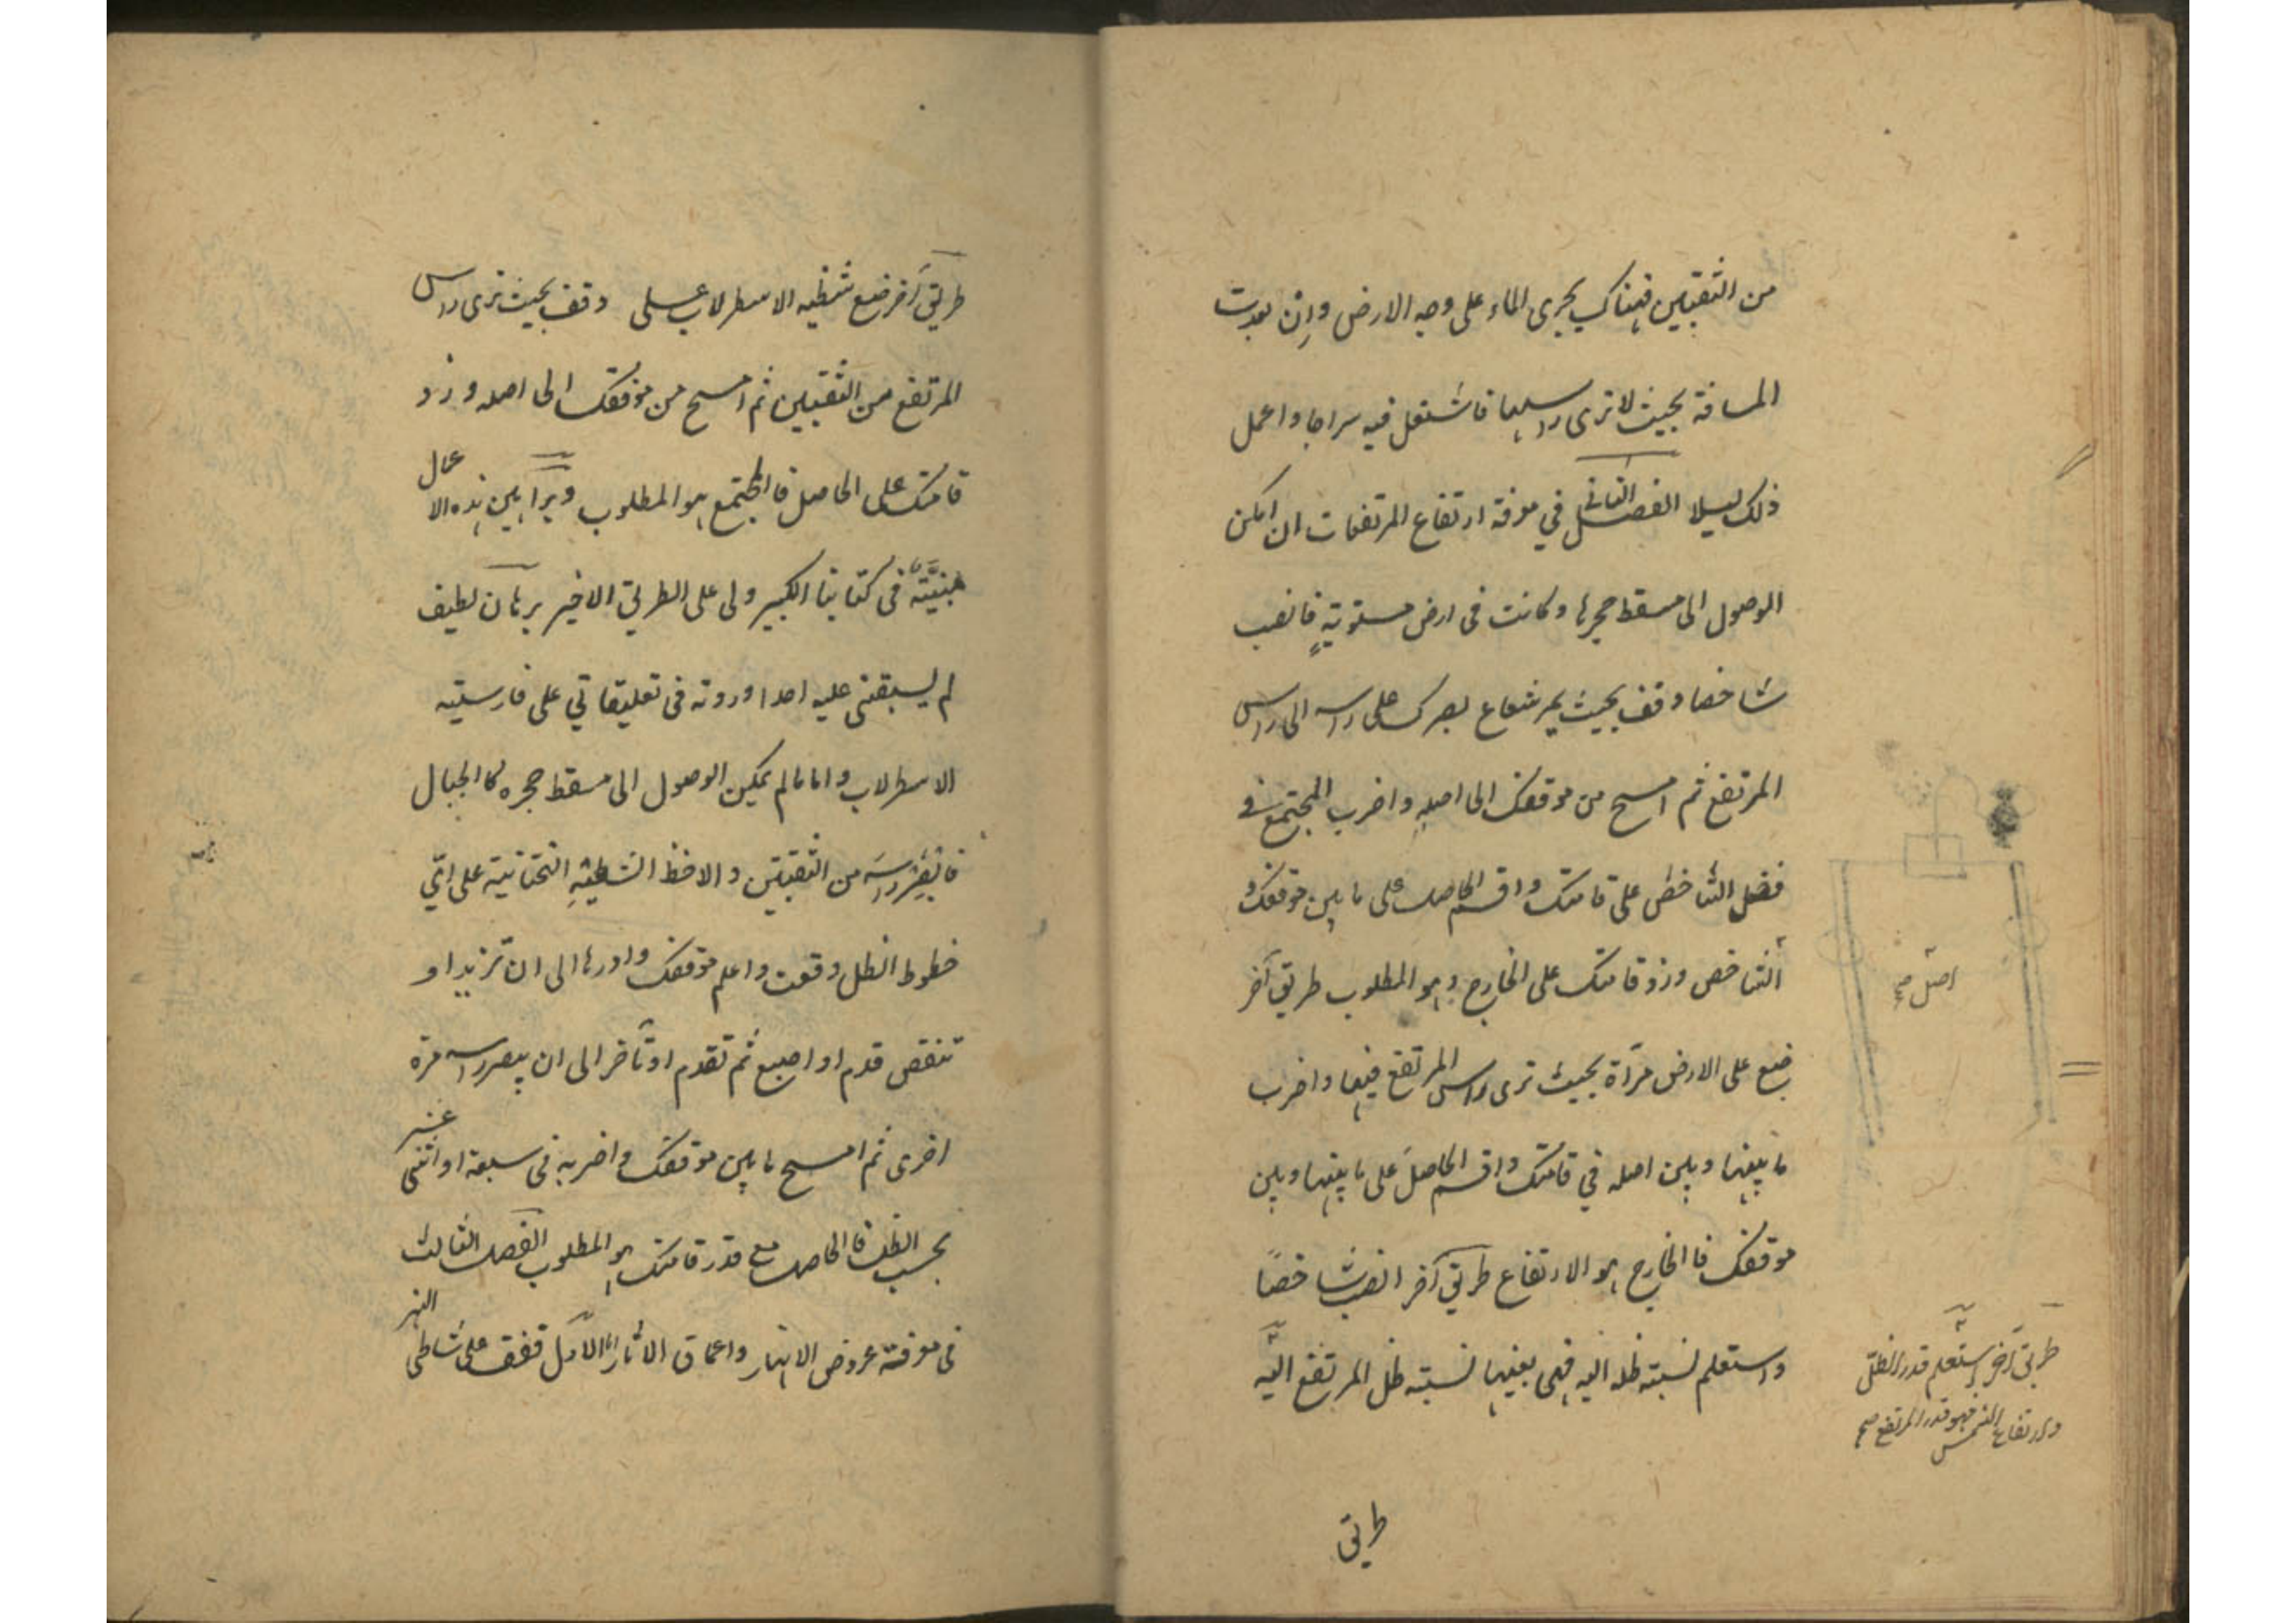 من الثقبتين فهناك يجرى الماء على وجه الارض وان بعدت
المسافة بحيث لا ترى راسها فاشتعل فيه سراجا واعمل
ذلك ليلا الفصل الثانى في معرفة ارتفاع المرتفعات ان امكن
الوصول الى مسقط حجرها وكانت فى ارض مستوية فانصب
شاخصا وقف بحيث يمر شعاع بصرك على راسه الى راس
المرتفع ثم امسح من موقفك الى اصله واضرب المجتمع فى
فضل الشاخص على قامتك واقسم الحاصل على ما بين موقفك و
الشاخص وزد قامتك على الخارج وهو المطلوب طريق آخر
ضع على الارض مرآة بحيث ترى راس المرتفع فيها واضرب
ما بينها وبين اصله في قامتك واقسم الحاصل على ما بينها وبين
موقفك فالخارج هو الارتفاع طريق آخر انصب شاخصًا
واستعلم نسبته ظله اليه فهى بعينها نسبته ظل المرتفع اليه
اصل صح
طريق آخر استعلم قدر الظل
وارتفاع الشمس فهو قدر المرتفع صح
طريق
طريق آخر ضع شظيه الاسطرلاب على وقف بحيث ترى راس
المرتفع من الثقبتين ثم امسح من موقفك الى اصله وزد
قامتك على الحاصل فالمجتمع هو المطلوب وبراهين هذه الاعمال
مبنيّنة فى كتابنا الكبير ولى على الطريق الاخير برهان لطيف
لم يسبقنى عليه احد اوردته فى تعليقاتي على فارسيته
الاسطرلاب واما مالم يمكن الوصول الى مسقط حجره كالجبال
فابصر راسه من الثقبتين والاحظ الشظيه التحتانية على اىّ
خطوط الظل وقعت واعلم موقفك وادرها الى ان تزيد او
تنقص قدم او اصبع ثم تقدم او تأخر الى ان يبصر راسه مرة
اخرى ثم امسح ما بين موقفك واضربه فى سبعة او اثنى عشر
بحسب الظل فالحاصل مع قدر قامتك هو المطلوب الفصل الثالث
فى معرفة عروض الانهار واعماق الآبار اما الاول فقف على شاطى النهر